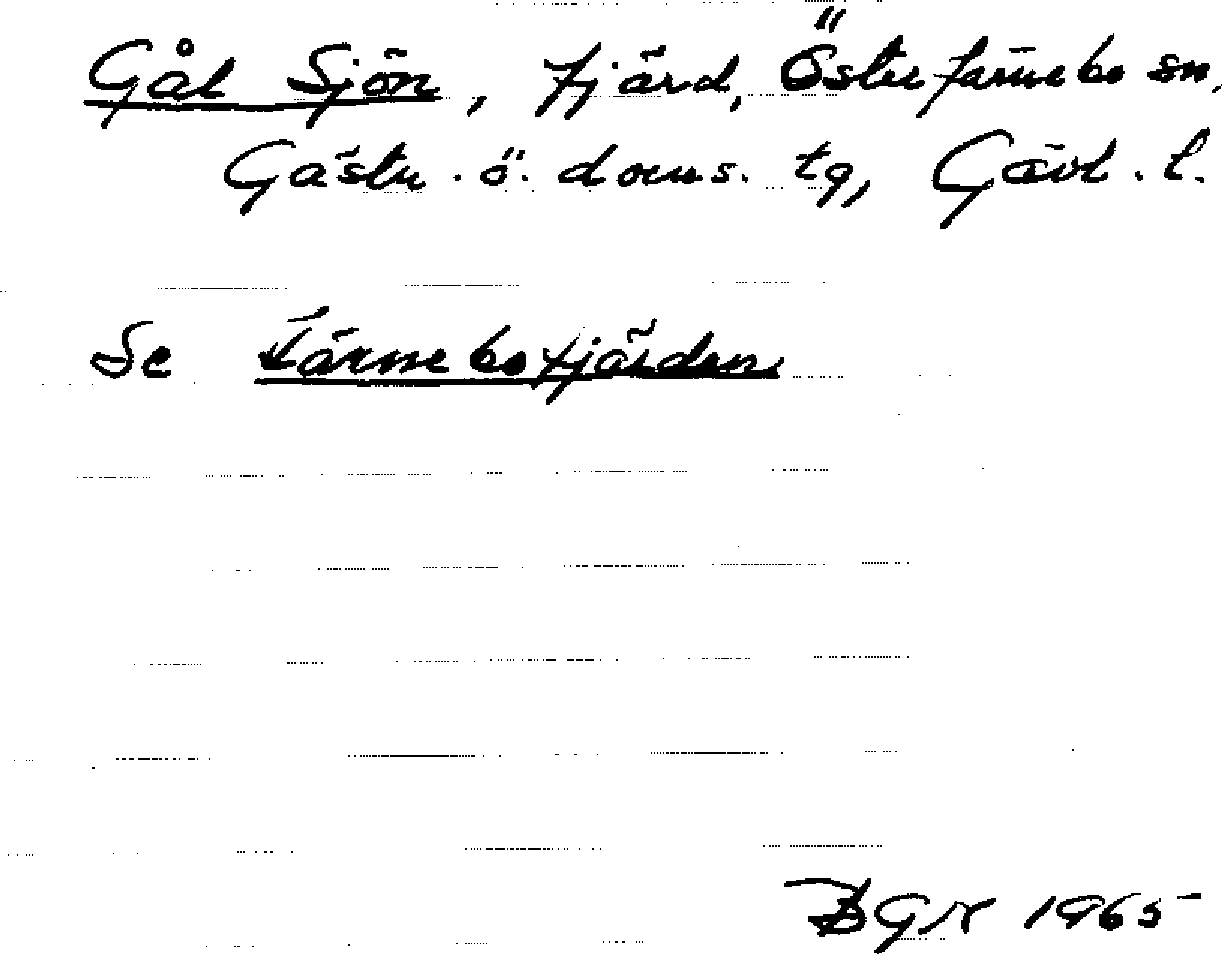 Gål Sjön, fjärd, Österfärnebo sn,
Gästr. ö. doms. tg, Gävl. l.
Se Färnebofjärden
1965